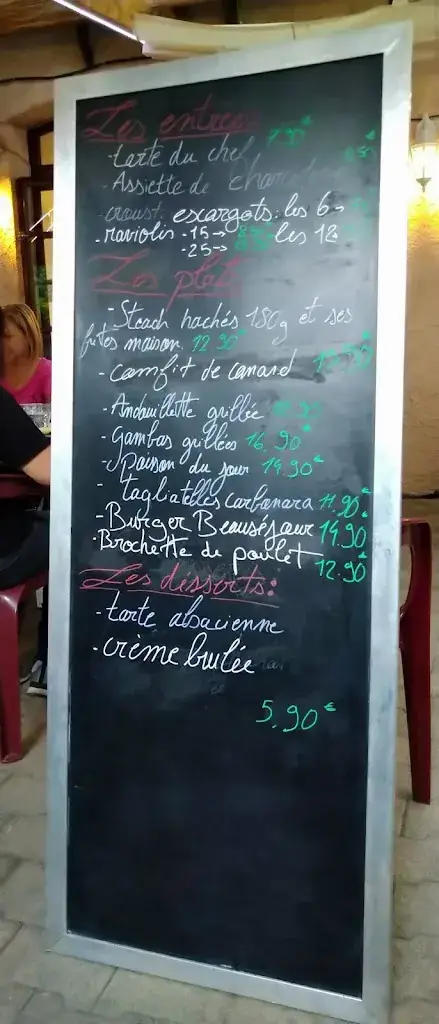 Les entrées
- tarte du chef 7.90€
- Assiette de
- croust. escargots: les 6→
- raviolis - 15→ les 12
- 25→
Les plats
- Steack hachés 180g et ses
frites maison. 12.90€
- comfit de canard
- Andouillette grillée
- Gambas grillées 16,90€
- Poisson du jour 14.90€
- tagliatelles carbonara 11.90€
- Burger Beauséjour 14.90€
- Brochette de poulet 12.90€
Les desserts:
- tarte alsacienne
- crème brulée
5.90€